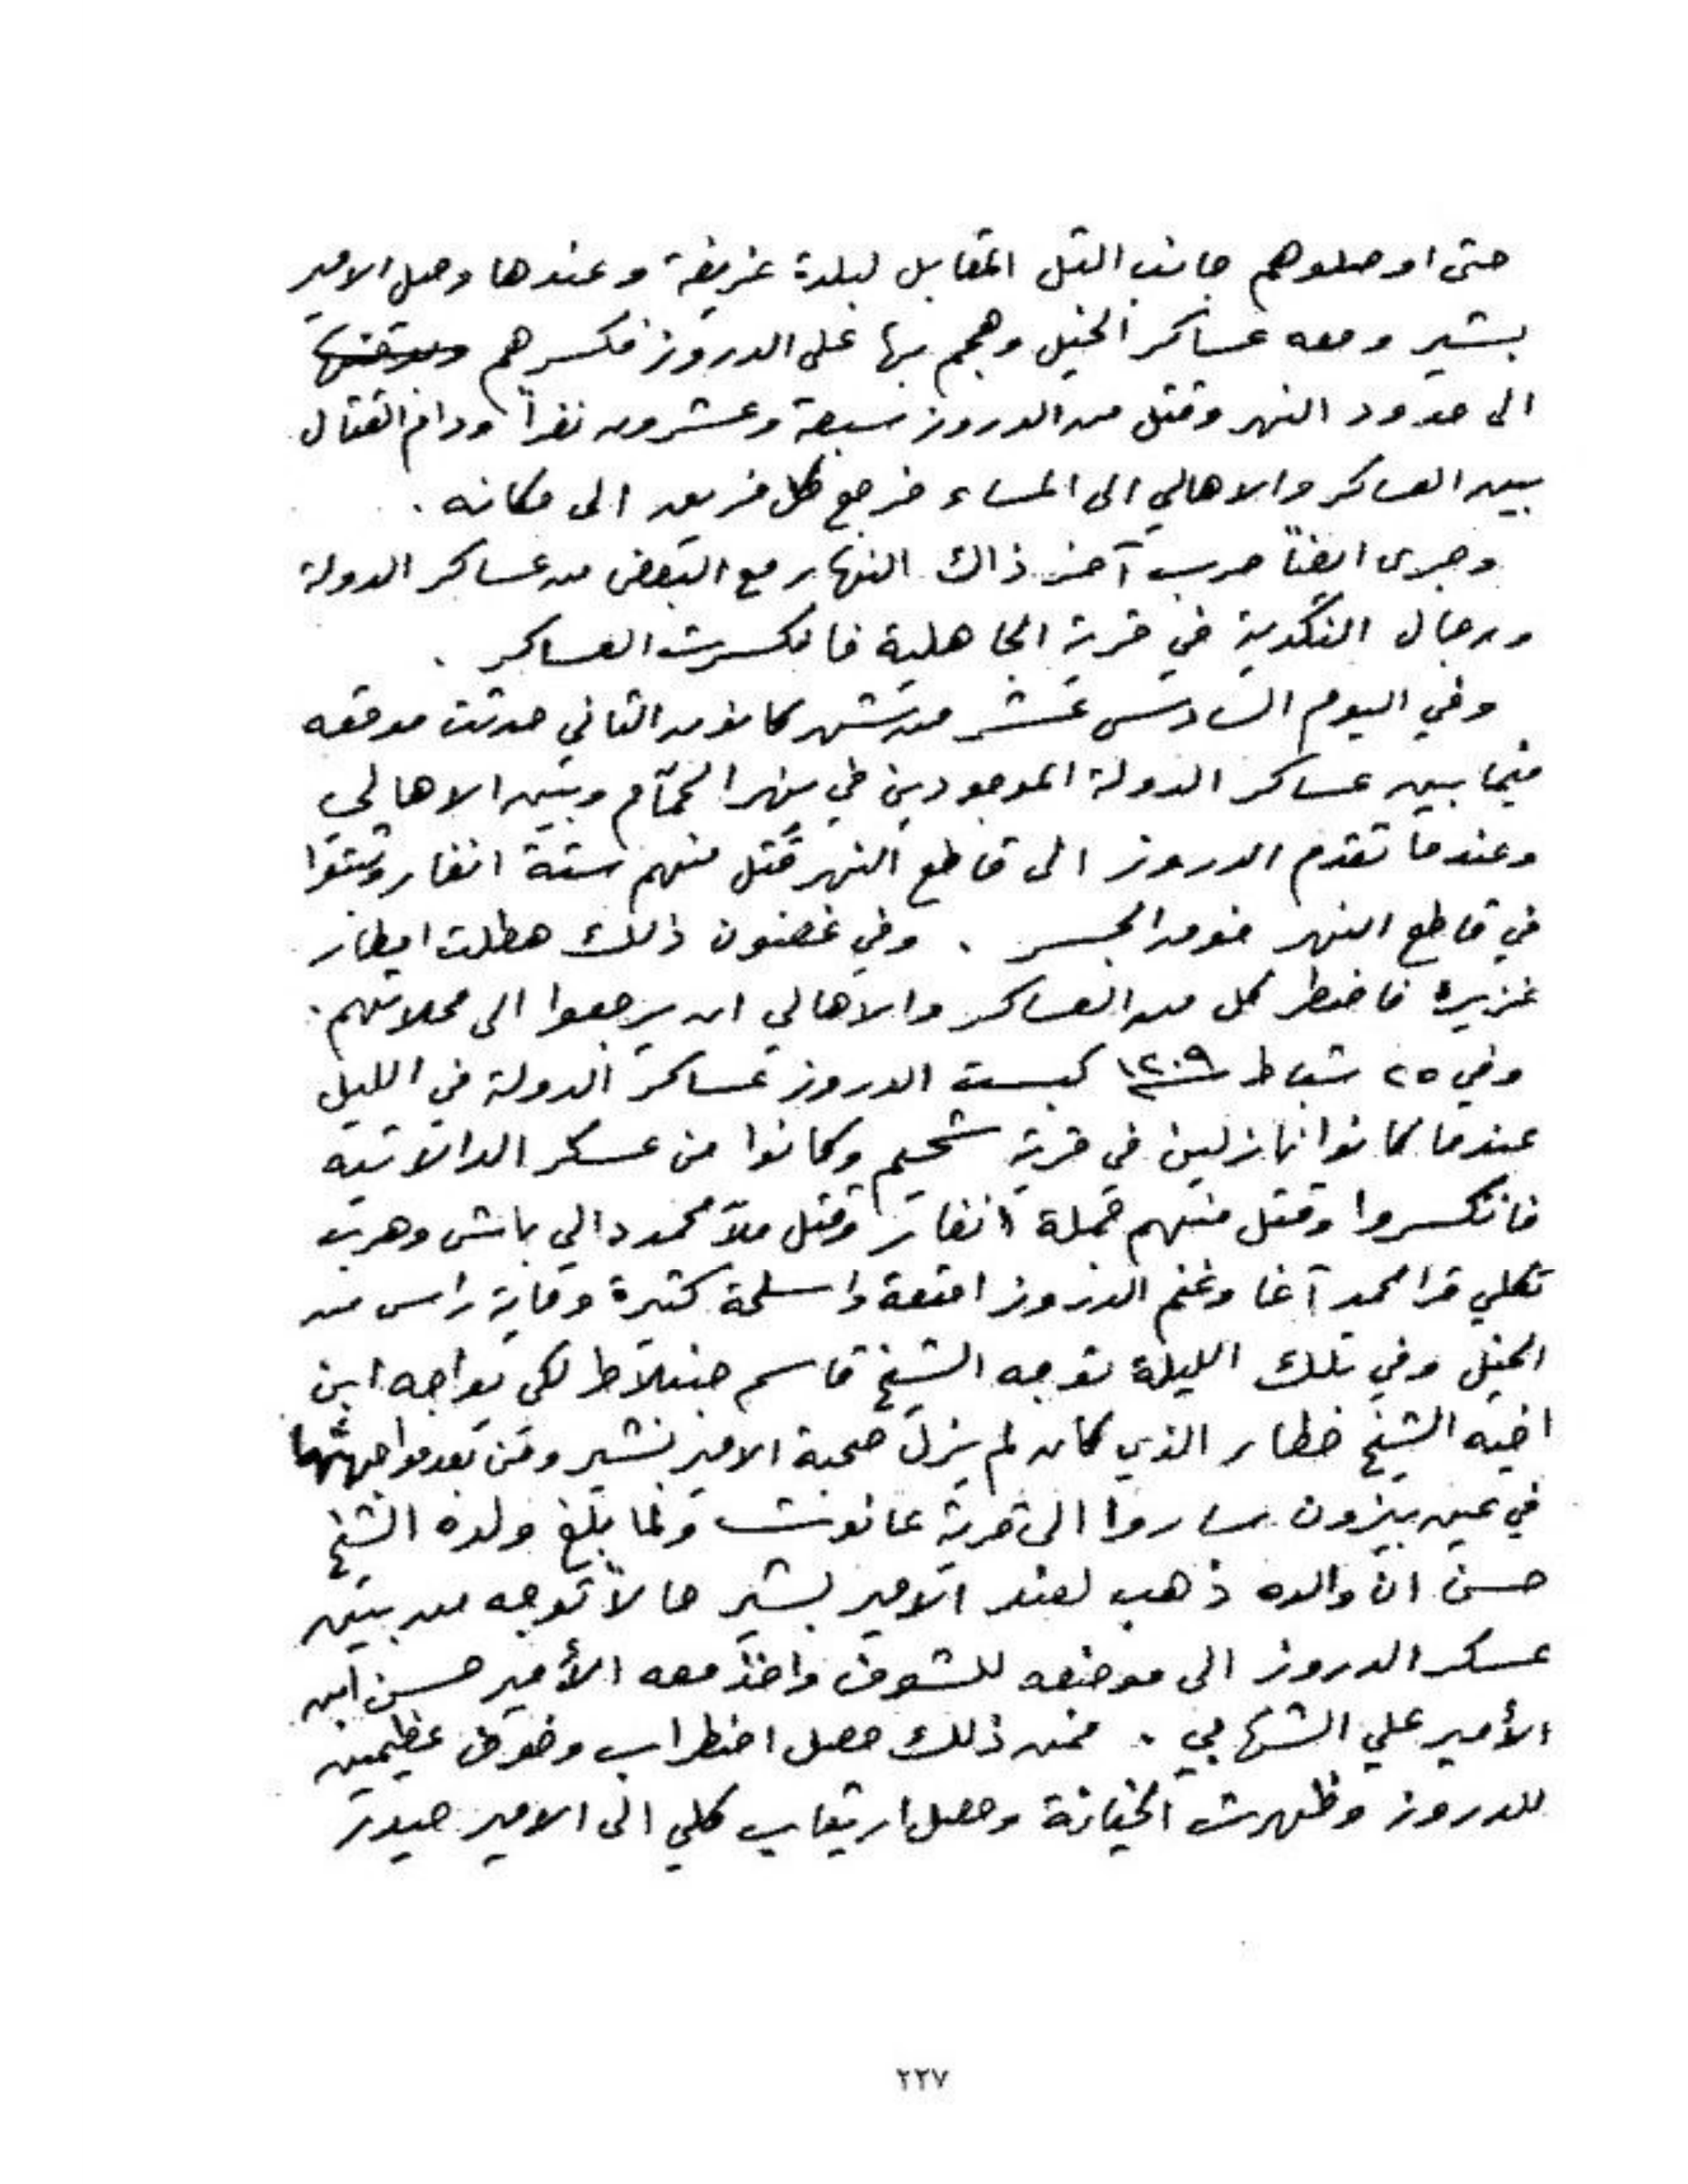 حتى اوصلوهم جانب التل المقابل لبلدة غريفة وعندها وصل الامير
بشير ومعه عساكر الخيل وهجم بها على الدروز فكسرهم
الى حدود النهر وقتل من الدروز سبعة وعشرون نفراً ودام القتال
بين العساكر والاهالي الى المساء فرجع كل فريق الى مكانه .
وجرى ايضاً حرب آخر ذاك النهار مع البعض من عساكر الدولة
ورجال النكدية في قرية الجاهلية فانكسرت العساكر .
وفي اليوم السادس عشر من شهر كانون الثاني حدثت موقعه
فيما بين عساكر الدولة الموجودين في نهر الحمّام وبين الاهالي
وعندما تقدم الدروز الى قاطع النهر قتل منهم ستة انفار وثبتوا
في قاطع النهر فوق الجسر . وفي غضون ذلك هطلت امطار
غزيرة فاضطر كل من العساكر والاهالي ان يرجعوا الى محلاتهم .
وفي ٢٥ شباط سنة ١٢٠٩ كبست الدروز عساكر الدولة في الليل
عندما كانوا نازلين في قرية شحيم وكانوا من عسكر الدالاتيه
فانكسروا وقتل منهم جملة انفار وقتل ملا محمد دالي باش وهرب
تكلي قرا محمد آغا وغنم الدروز امتعة واسلحة كثيرة وماية راس من
الخيل وفي تلك الليلة توجه الشيخ قاسم جنبلاط لكي يواجه ابن
اخيه الشيخ خطار الذي كان لم يزل صحبة الامير بشير ومن بعد مواجهتهما
في عين بيزون ساروا الى قرية عانوت ولما بلغ ولده الشيخ
حسن ان والده ذهب لعند الامير بشير حالاً توجه من بين
عسكر الدروز الى موضعه للشوف واخذ معه الأمير حسن ابن
الأمير علي الشهابي . فمن ذلك حصل اضطراب وخوف عظيمين
للدروز وظهرت الخيانة وحصل ارتياب كلي الى الامير حيدر
٢٢٧